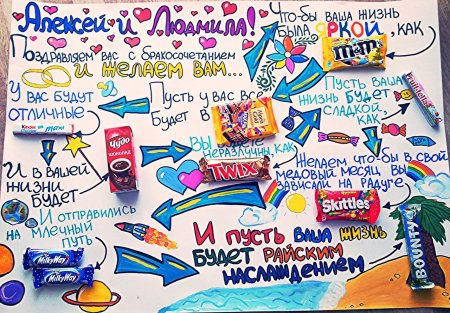 Алексей и Людмила!
Поздравляем вас с бракосочетанием
И желаем вам...
Что-бы ваша жизнь
была яркой, как
m&m's
Пусть ваша
жизнь будет
сладкой, как
Пусть у вас все
будет в
вы
неразлучны, как
TWIX
У вас будут
отличные
Чудо
шоколад
И в вашей
жизни
будет
Желаем что-бы в свой
медовый месяц вы
зависали на радуге
Skittles
И отправились
на млечный
путь
Milky Way
Milky Way
И пусть ваша жизнь
будет райским
наслаждением
BOUNTY